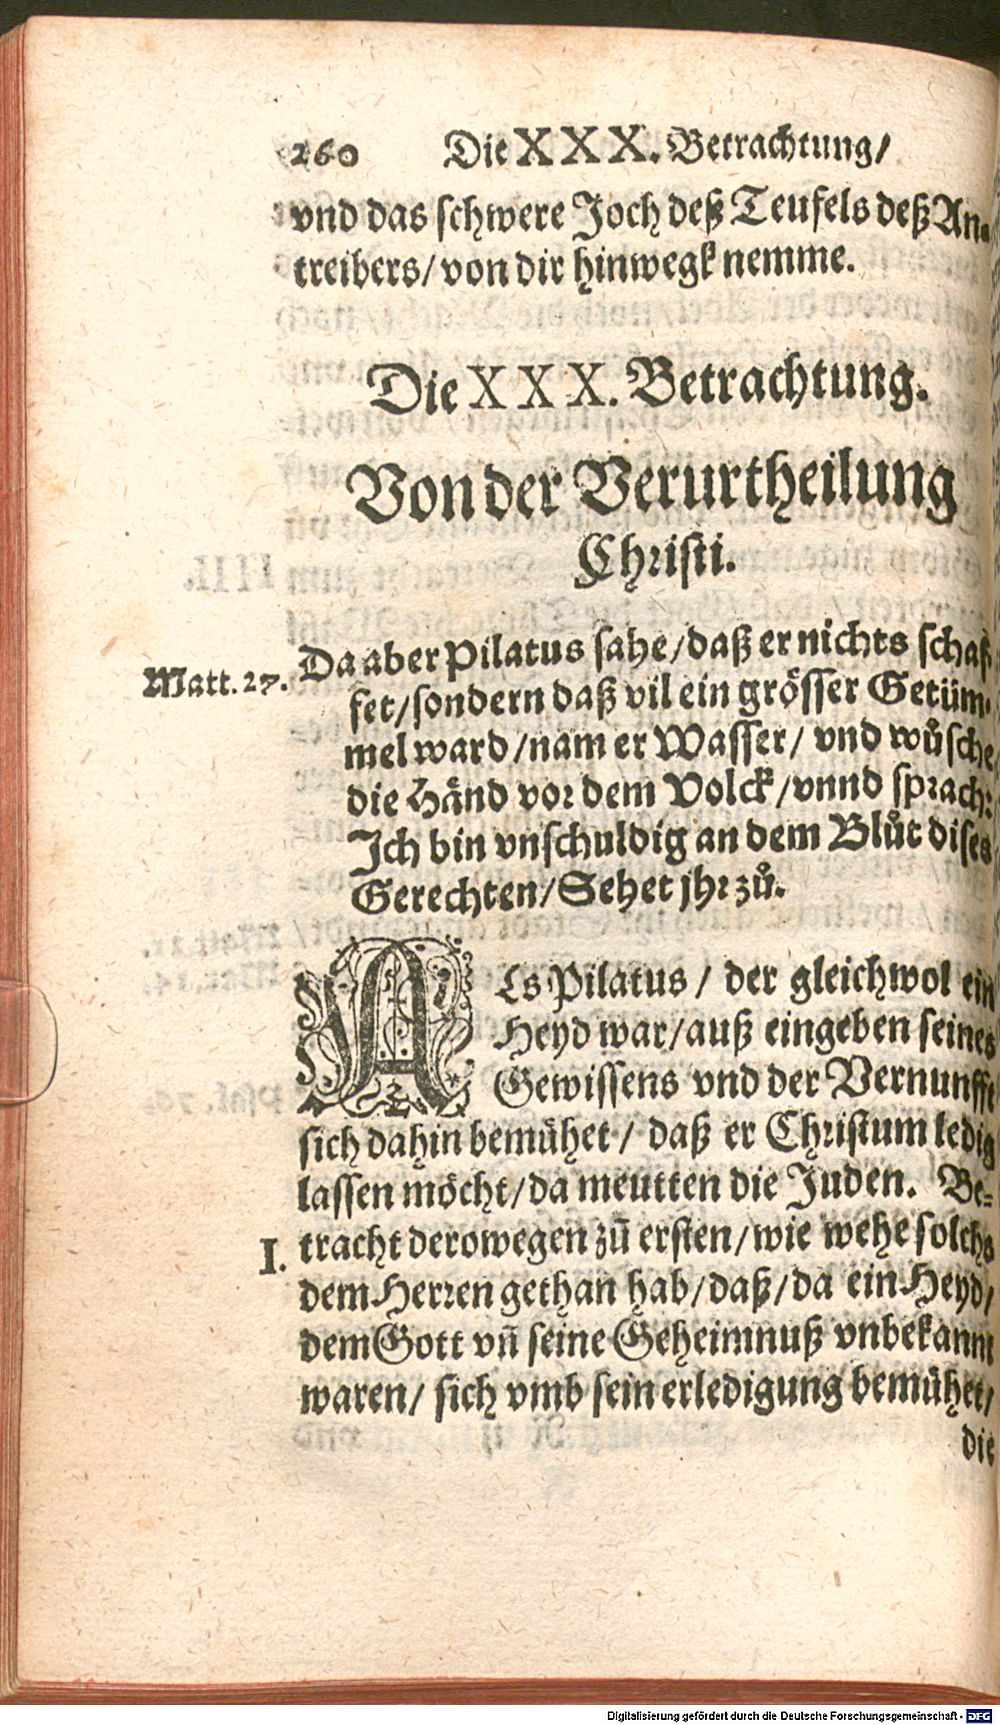 260 Die XXX. Betrachtung/
vnd das schwere Joch deß Teufels deß An-
treibers/ von dir hinwegk nemme.
Die XXX. Betrachtung.
Von der Verurtheilung
Christi.
Matt. 27. Da aber Pilatus sahe/ daß er nichts schaf-
fet/ sondern daß vil ein grösser Getüm-
mel ward/ nam er Wasser/ vnd wůsche
die Händ vor dem Volck/ vnnd sprach:
Ich bin vnschuldig an dem Blůt dises
Gerechten/ Sehet jhr zů.
ALs Pilatus/ der gleichwol ein
Heyd war/ auß eingeben seines
Gewissens vnd der Vernunfft
sich dahin bemühet/ daß er Christum ledig
lassen möcht/ da meutten die Juden. Be-
I. tracht derowegen zū ersten/ wie wehe solchs
dem Herren gethan hab/ daß/ da ein Heyd/
dem Gott vñ seine Geheimnuß vnbekannt
waren/ sich vmb sein erledigung bemühet/
die
Digitalisierung gefördert durch die Deutsche Forschungsgemeinschaft - DFG